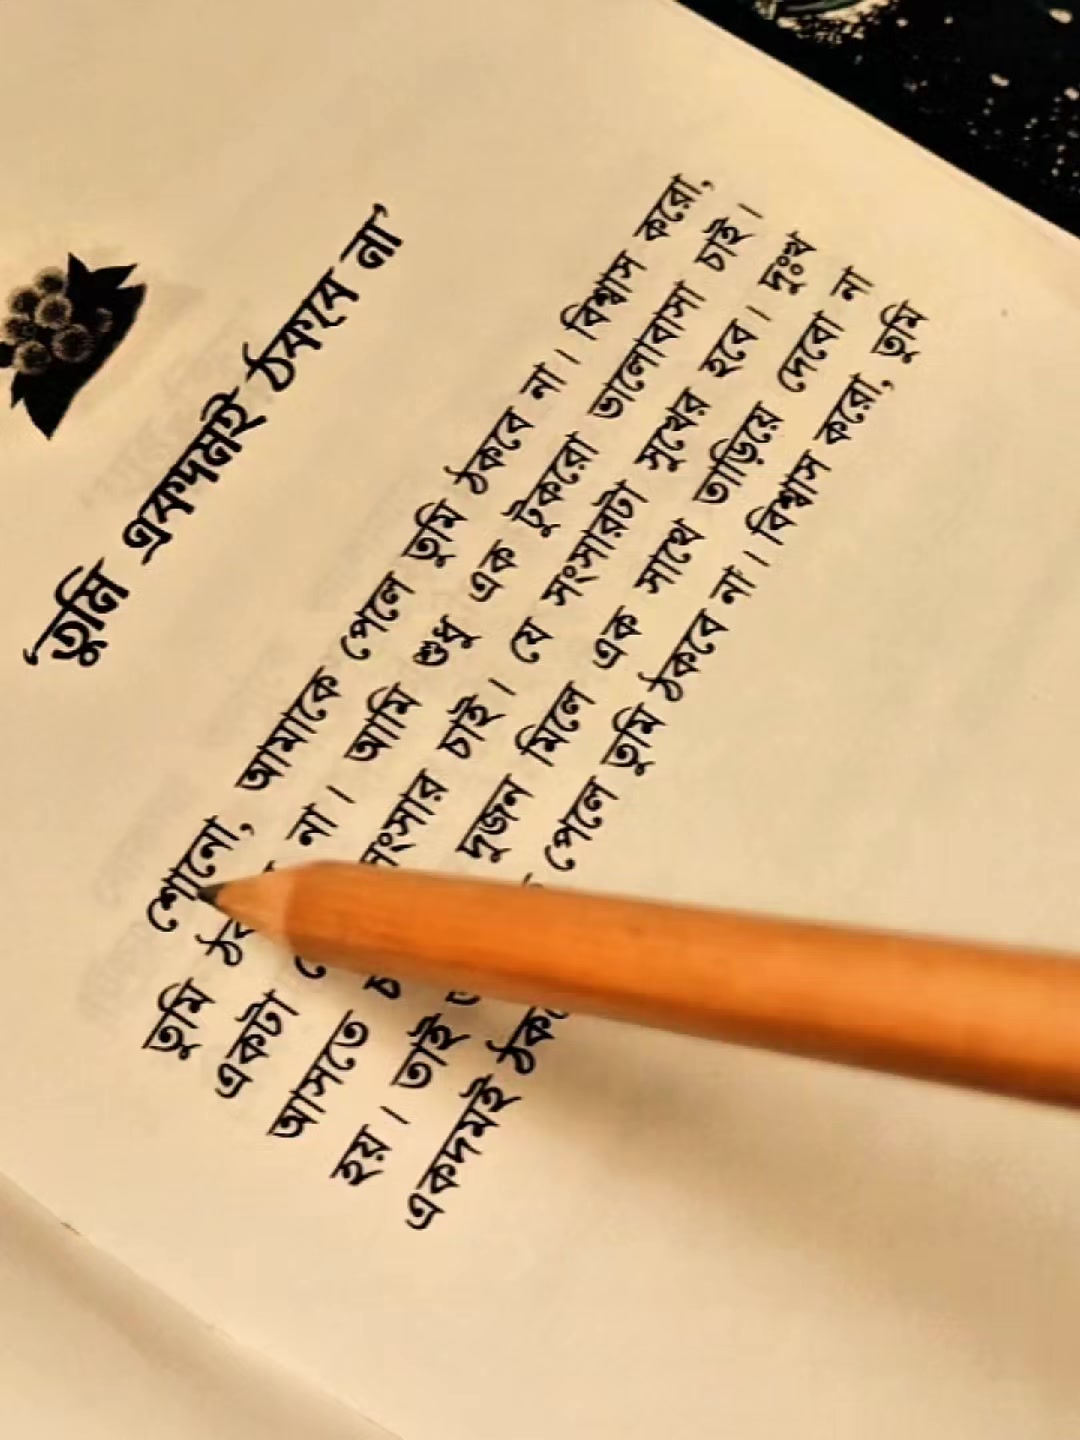 'তুমি একদমই ঠকবে না'
শোনো, আমাকে পেলে তুমি ঠকবে না। বিশ্বাস করো,
তুমি না। আমি শুধু এক টুকরো ভালোবাসা চাই।
একটা সংসার চাই। যে সংসারটা সুখের হবে। দুঃখ
আসতে দুজন মিলে এক সাথে তাড়িয়ে দেবো না
হয়। তাই পেলে তুমি ঠকবে না। বিশ্বাস করো, তুমি
একদমই